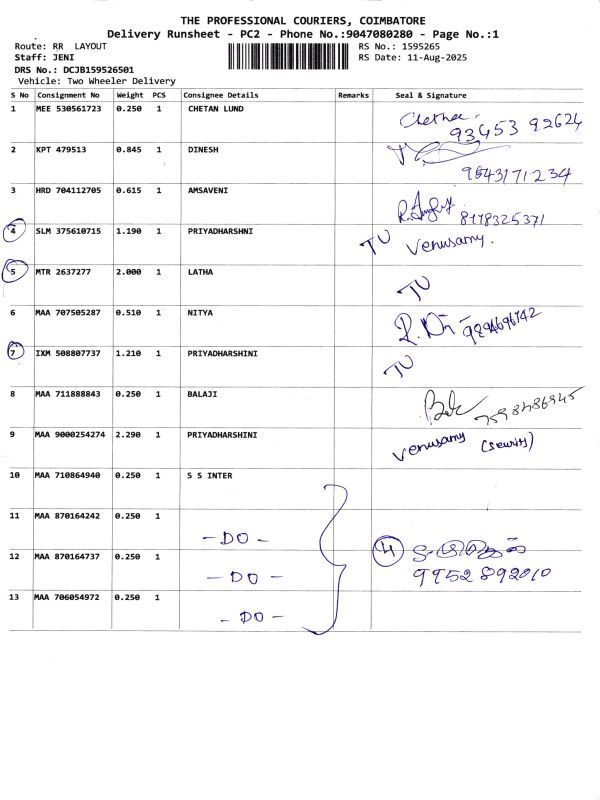 THE PROFESSIONAL COURIERS, COIMBATORE
Delivery Runsheet - PC2 - Phone No.:9047080280 - Page No.:1
Route: RR LAYOUT
RS No.: 1595265
Staff: JENI
RS Date: 11-Aug-2025
DRS No.: DCJB159526501
Vehicle: Two Wheeler Delivery
S No Consignment No Weight PCS Consignee Details Remarks Seal & Signature
1 MEE 530561723 0.250 1 CHETAN LUND
93453 92624
2 KPT 479513 0.845 1 DINESH
3 HRD 704112705 0.615 1 AMSAVENI
8778325371
4 SLM 375610715 1.190 1 PRIYADHARSHNI TU Venusamy.
5 MTR 2637277 2.000 1 LATHA TU
6 MAA 707505287 0.510 1 NITYA
7 IXM 508807737 1.210 1 PRIYADHARSHINI TU
8 MAA 711888843 0.250 1 BALAJI
9 MAA 9000254274 2.290 1 PRIYADHARSHINI Venusamy
10 MAA 710864940 0.250 1 S S INTER
11 MAA 870164242 0.250 1 - DO -
12 MAA 870164737 0.250 1 - DO - 4
9952892010
13 MAA 706054972 0.250 1 - DO -